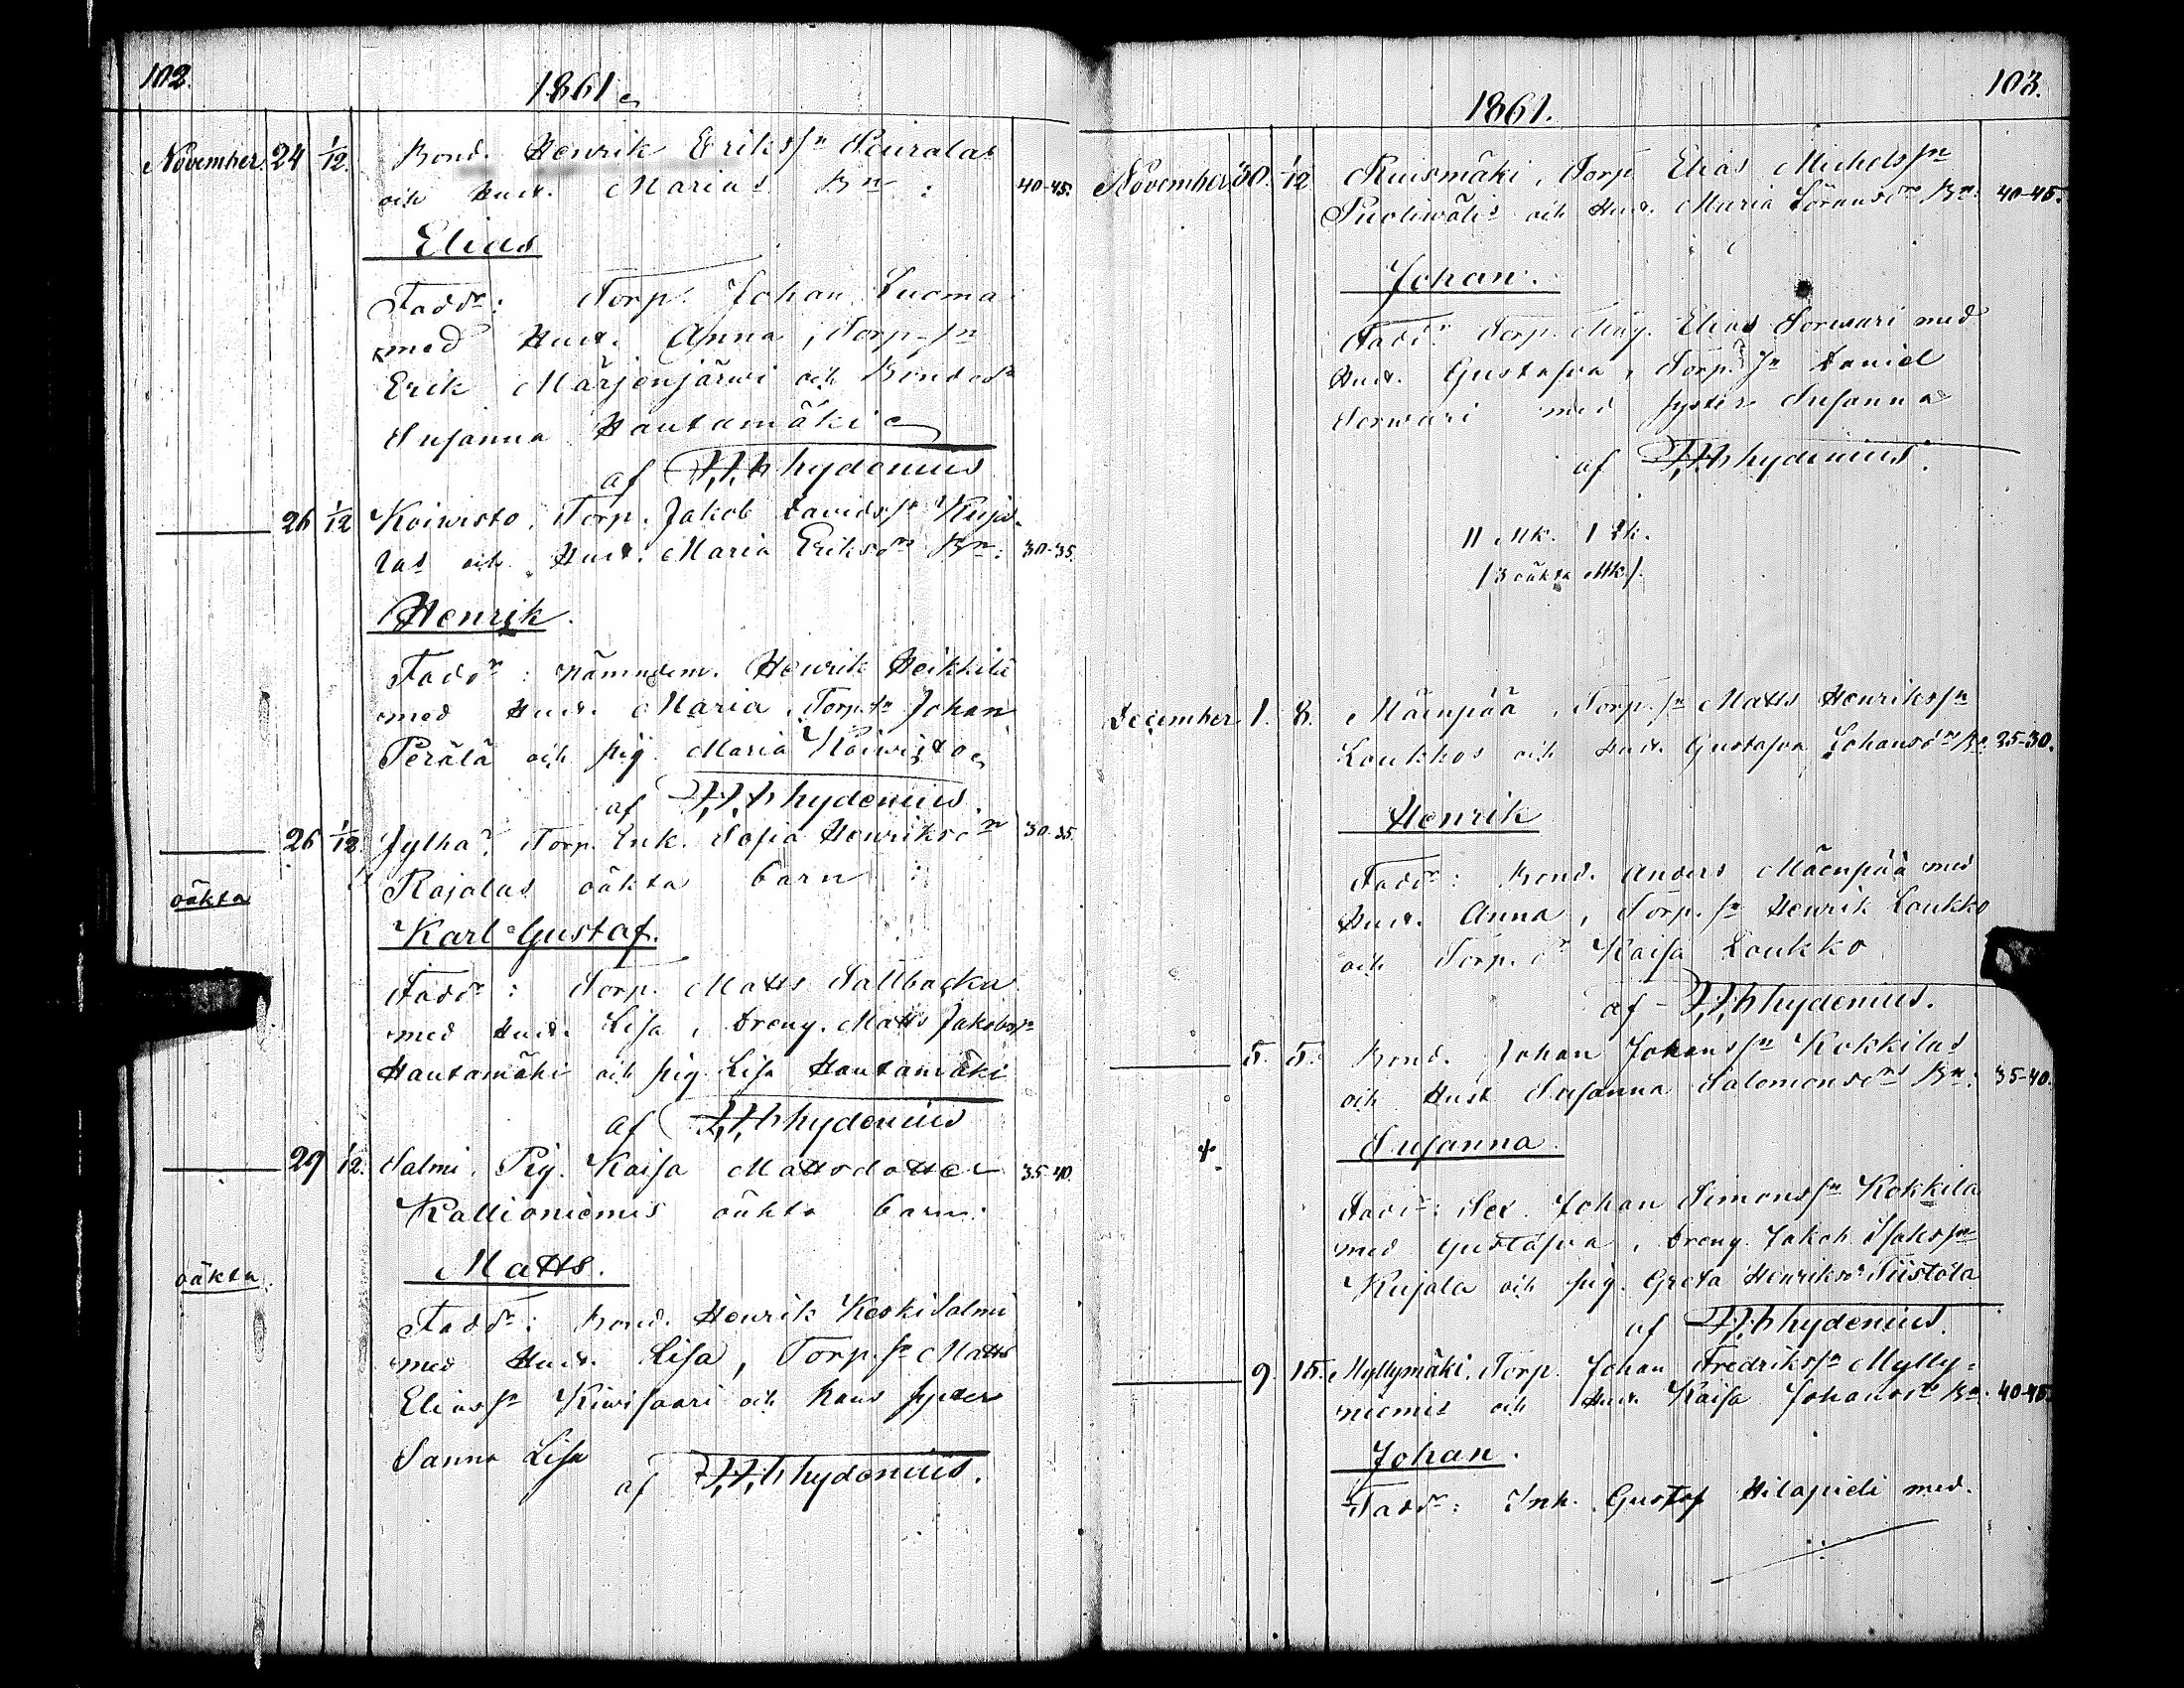 102.
1861
November. 24 1/12. Bond. Henrik Erikssn Peuralas
och Hust. Marias Bn: 40-45.
Elias
Faddr: Torp. Johan Luoma
med Hust. Anna, Torp-sn
Erik Märjenjärwi och Bondedr
Susanna Hautamäki
af Thydenius
26 1/12 Koiwisto, Torp. Jakob Davidssn Kuja-
las och Hust. Maria Eriksdrs Bn: 30-35.
Henrik.
Faddr: Nämndem. Henrik Heikkilä
med Hust. Maria, Torp. sn Johan
Perälä och pig. Maria Koiwisto
af Thydenius.
26 1/12. Jylhä, Torp. Enk. Sofia Henriksdr 30-35.
oäkta Rajalas oäkta barn:
Karl Gustaf.
Faddr: Torp. Matts Sallbacka
med Hust. Lisa, Dreng. Matts Jakobssn
Hautamäki och pig. Lisa Hautamäki
af Thydenius
29 1/12. Salmi, Pig. Kaisa Mattsdotter 35-40.
Kallioniemis oäkta barn:
oäkta.
Matts.
Faddr: Bond. Henrik KeskiSalmi
med Hust. Lisa, Torp. sn Matts
Eliassn Kiwisaari och hans syster
Sanna Lisa
af Thydenius.
103.
1861.
November 30. 1/12 Ruismäki, Torp Elias Michelssn
Puoliwälis och Hust. Maria Göransdrs Bn: 40-45.
Johan.
Faddr: Torp. Måg. Elias Sorwari med
Hust. Gustafva, Torp. sn Daniel
Sorwari med syster Susanna
af Thydenius.
11 Mk. 1 Qk.
/3 oäkta Mk/.
December 1. 8. Mäenpää, Torp. sn Matts Henrikssn
Loukkos och Hust. Gustafva Johansdrs Bn: 25-30.
Henrik
Faddr: Bond. Anders Mäenpää med
Hust. Anna, Torp. sn Henrik Loukko
och Torp. dr Kaisa Loukko
af Thydenius.
5. 5. Bond. Johan Johanssn Kokkilas
och Hust Susanna Salomonsdrs Bn: 35-40.
Susanna.
Faddr: Sex. Johan Simonssn Kokkila
med Gustafva, Dreng. Jakob Isakssn
Kujala och pig. Greta Henriksdr Tiistola
af Thydenius.
9. 15. Myllymäki, Torp. Johan Fredrikssn Mylly-
niemis och Hust. Kaisa Johansdrs Bn: 40-45.
Johan.
Faddr: Inh. Gustaf Hilapieli med.